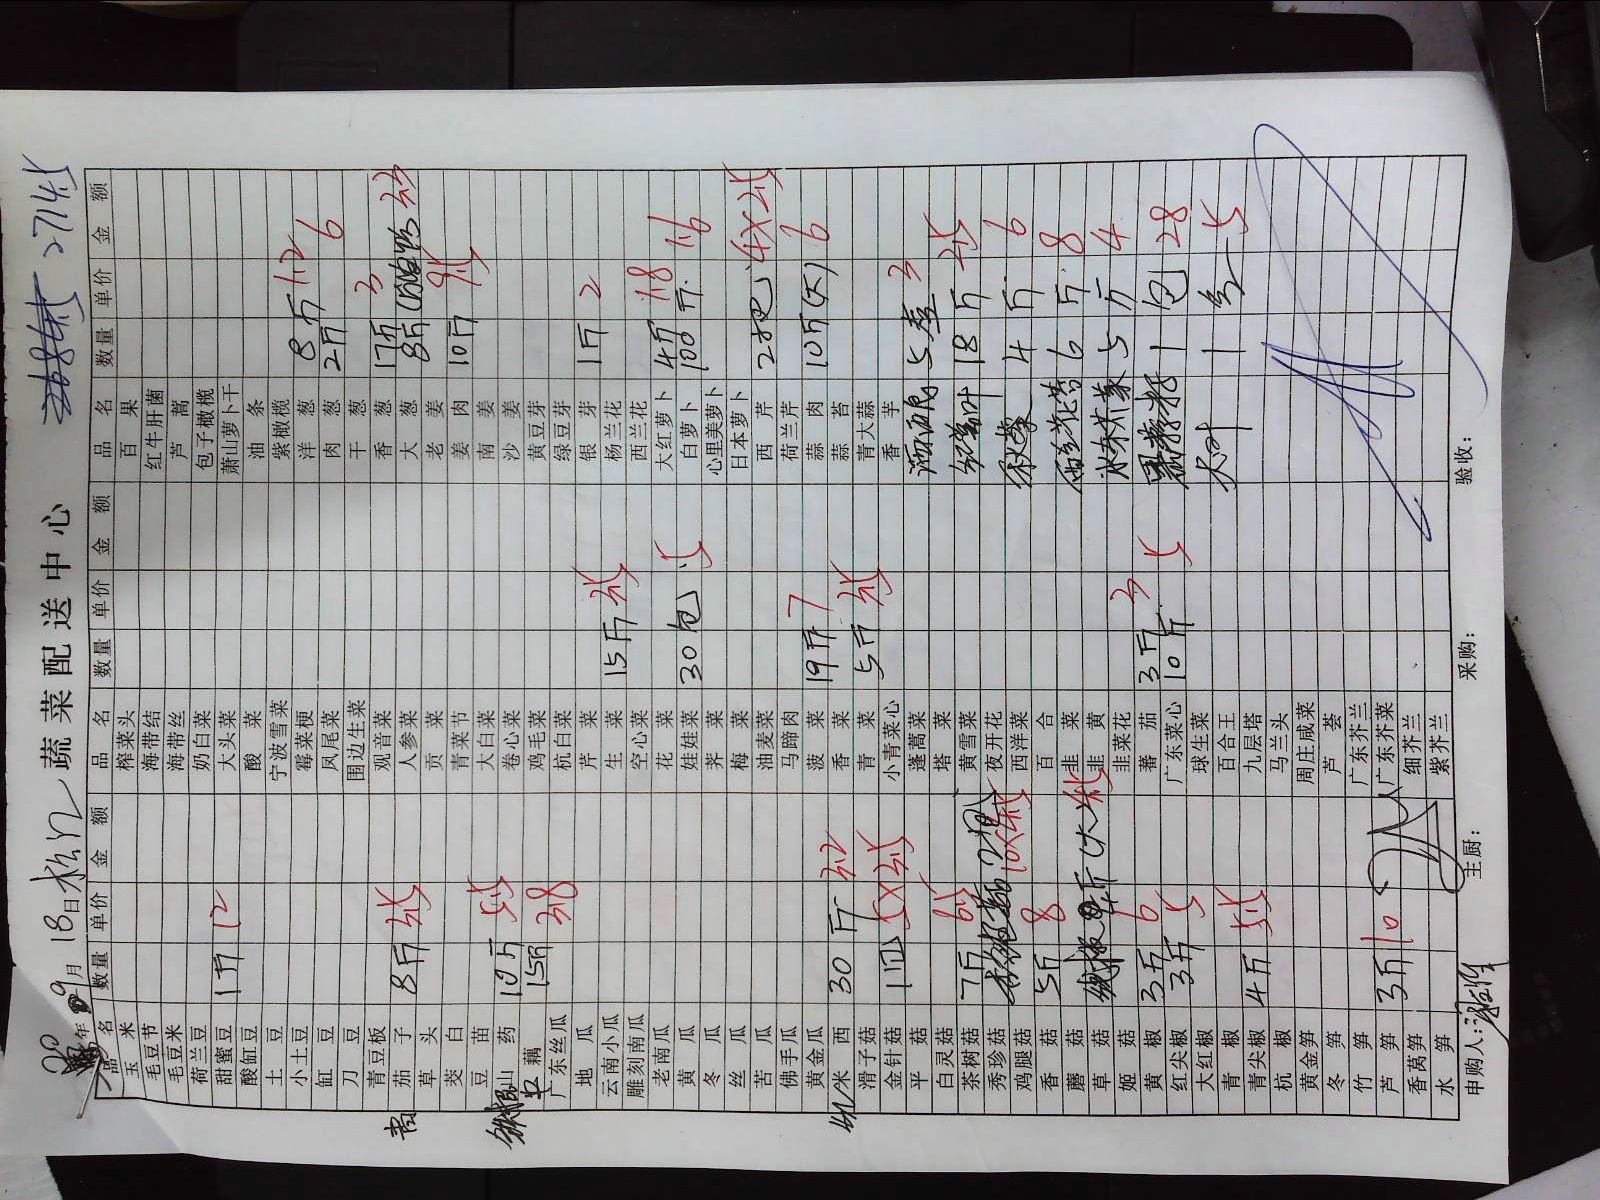 蔬菜配送中心
9月18日 2714.5
品名 数量 单价 金额 品名 数量 单价 金额 品名 数量 单价 金额
玉米 榨菜头 百果
毛豆节 海带结 红牛肝菌
毛豆米 海带丝 芦蒿
荷兰豆 奶白菜 包子橄榄
甜蜜豆 1斤 12 大头菜 萧山萝卜干
酸缸豆 酸菜 油条
土豆 宁波雪菜 紫橄榄
小土豆 霉菜梗 洋葱 8斤 1.2
缸豆 凤尾菜 肉葱 2斤 6
刀豆 围边生菜 干葱
青豆板 观音菜 香葱 17斤 3
青 茄子 8斤 3.5 人参菜 大葱 8斤 3.5
草头 贡菜 老姜
茭白 青菜节 姜肉 10斤 9.5
豆苗 大白菜 南姜
山药 10斤 5.5 卷心菜 沙姜
藕 15斤 3.8 鸡毛菜 黄豆芽
广东丝瓜 杭白菜 绿豆芽
地瓜 芹菜 银芽 1斤 2
云南小瓜 生菜 15斤 3.5 杨兰花
雕刻南瓜 空心菜 西兰花
老南瓜 花菜 大红萝卜 4斤 1.8
黄瓜 娃娃菜 30包 5 白萝卜 100斤 1.6
冬瓜 荠菜 心里美萝卜
丝瓜 梅菜 日本萝卜
苦瓜 油麦菜 西芹 2把 4×2.5
佛手瓜 马蹄肉 荷兰芹
黄金瓜 菠菜 19斤 7 蒜肉 10斤(大) 6
米西 30斤 3.2 香菜 蒜苔
滑子菇 青菜 5斤 3.5 青大蒜
金针菇 1包 5×3.5 小青菜心 香芋
平菇 蓬蒿菜 5盒 3
白灵菇 塔菜
茶树菇 7斤 6.5 黄雪菜 红薯叶 18斤 2.5
秀珍菇 夜开花
鸡腿菇 10×4.5 西洋菜 4斤 6
香菇 5斤 8 百合
蘑菇 韭菜 西兰花苔 6斤 8
草菇 4.5 韭黄
姬菇 韭菜花 5斤 4
黄椒 3斤 6 蕃茄 3斤 3
红尖椒 3斤 5 广东菜心 10斤 5 1包 28
大红椒 球生菜
青椒 百合王 大叶 1 5
青尖椒 4斤 5.5 九层塔
杭椒 马兰头
黄金笋 周庄咸菜
冬笋 芦荟
竹笋 广东芥兰
芦笋 3斤 10 广东芥菜
香莴笋 细芥兰
水笋 紫芥兰
申购人: 主厨: 采购: 验收: